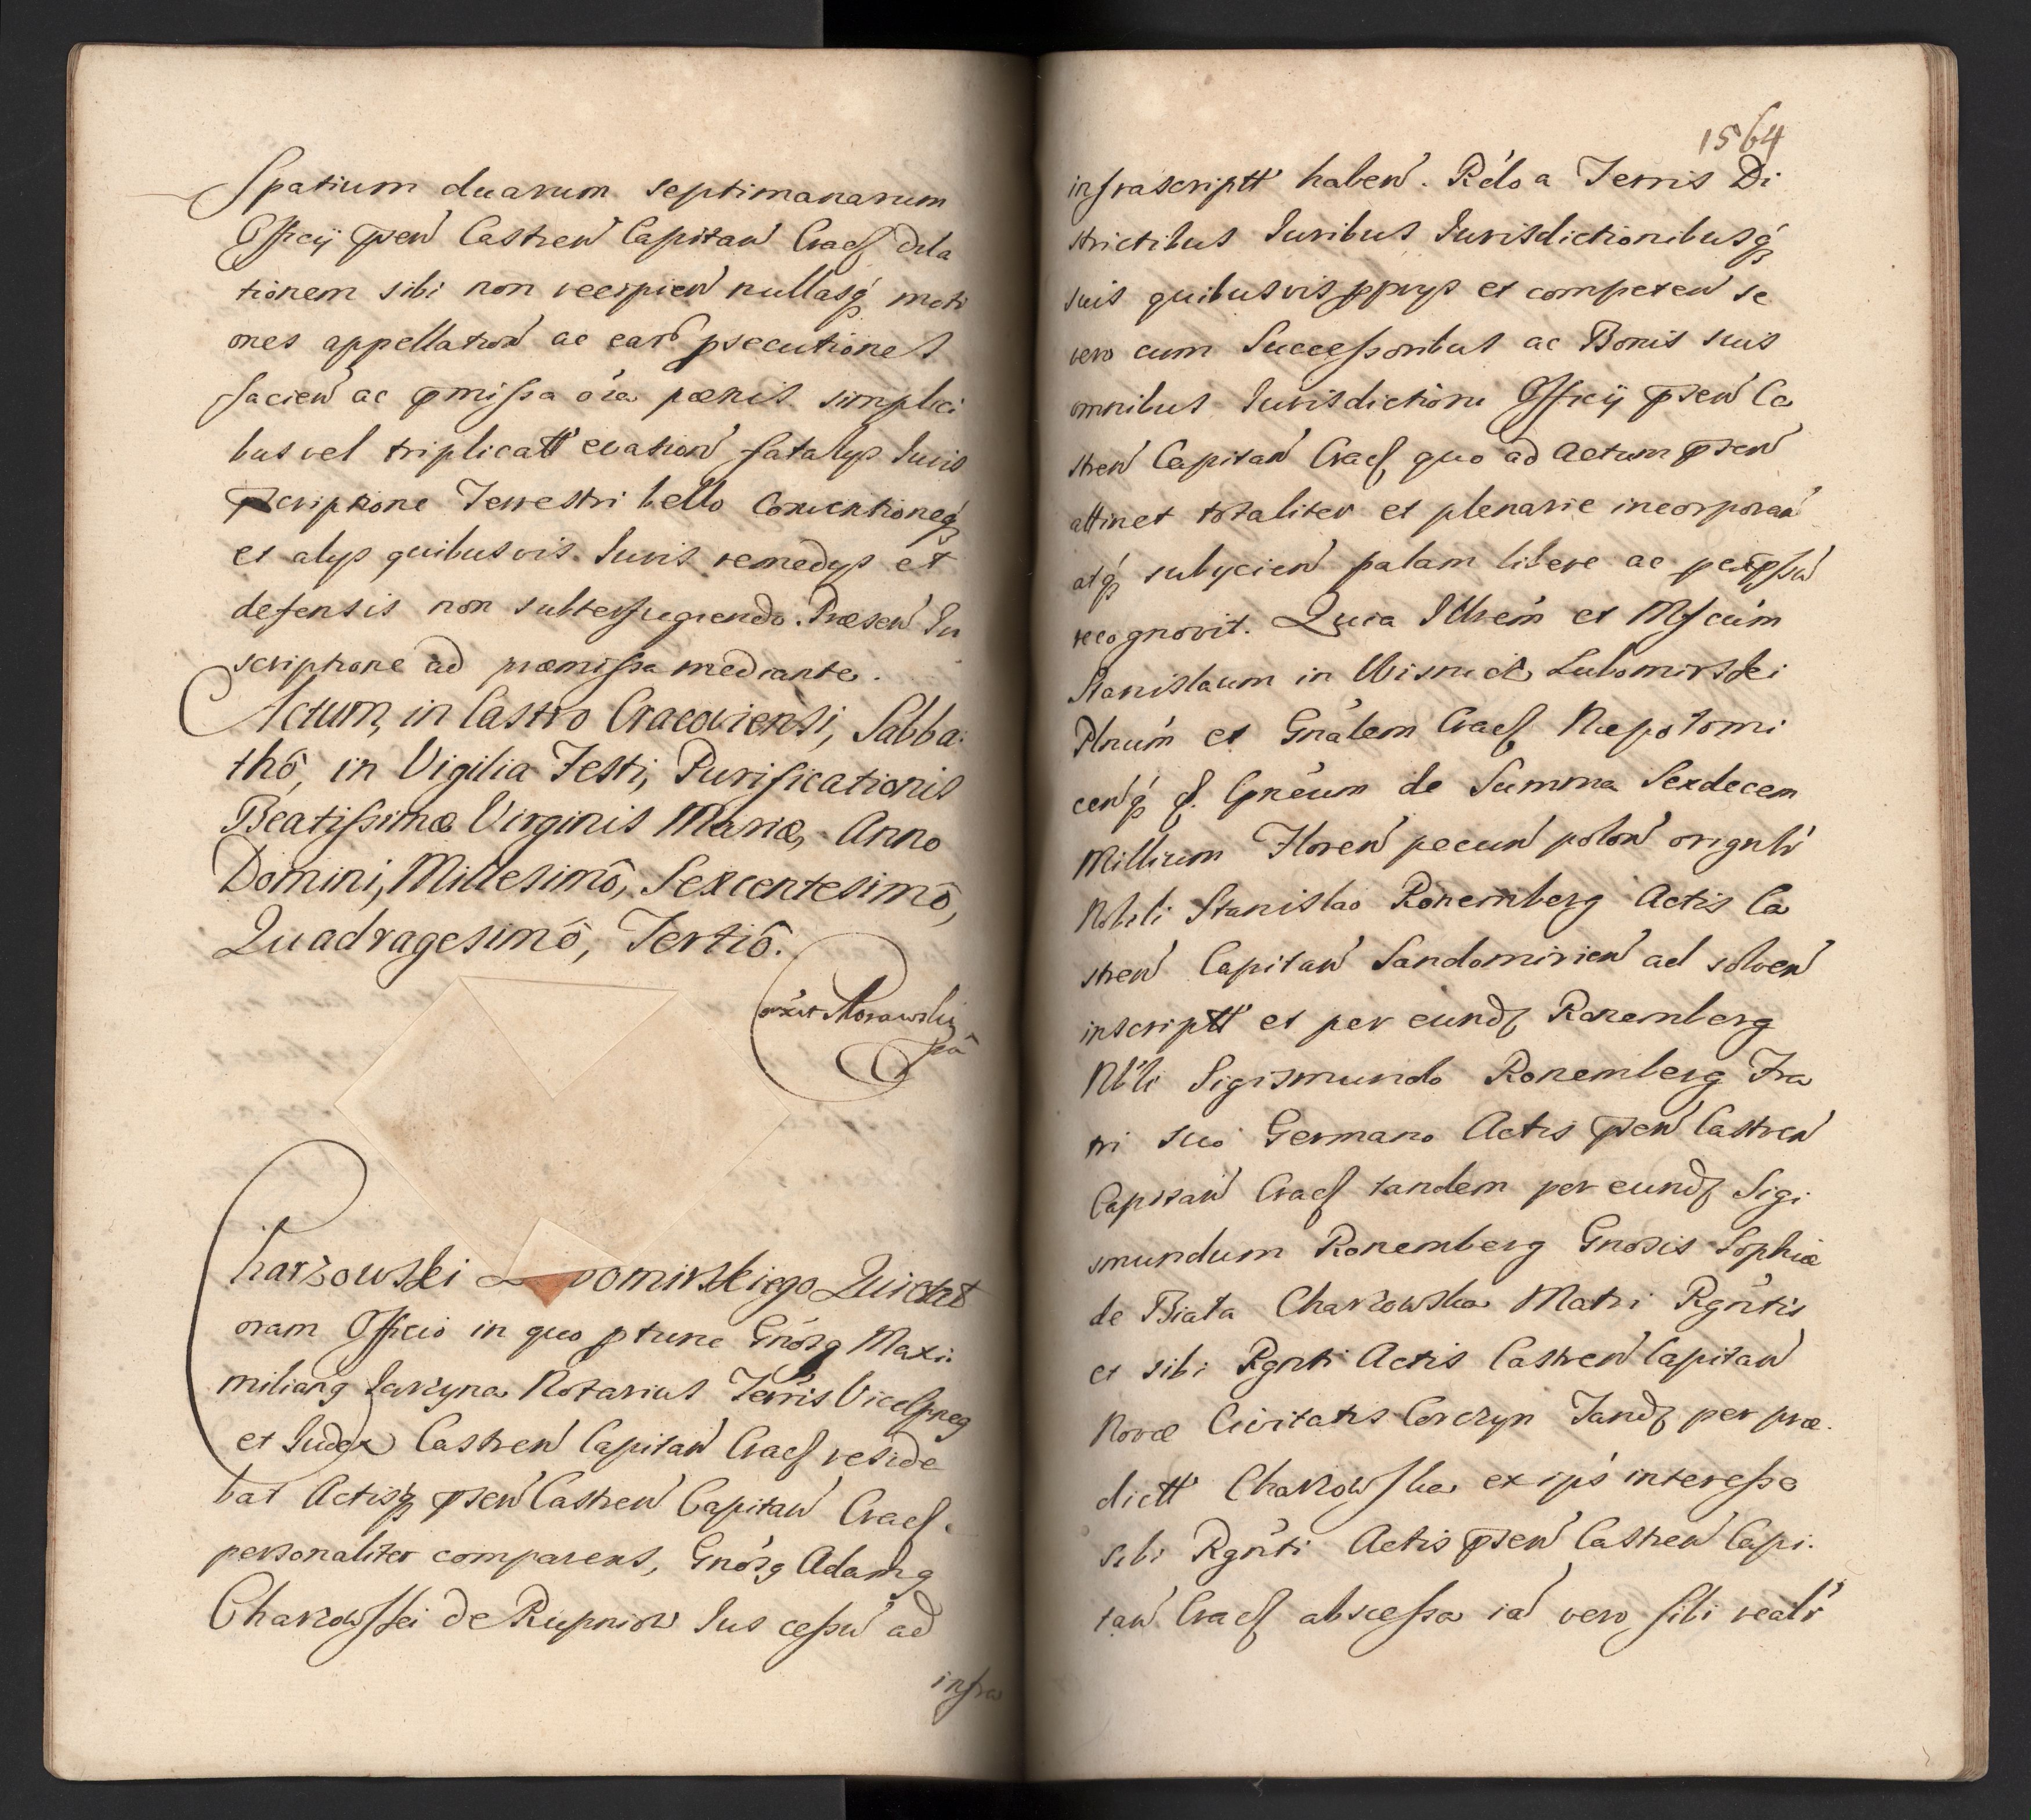 Spatium duarum septimanarum
Officÿ pñsen̄ Castren̄ Capitan̄ Cracẜ dila
tionem sibi non recipien̄ nullasqꝫ moti
ones appellation̄ ac earū prosecutiones
facien̄ ac præmissa oīa pœnis simplici
bus vel triplicatt̄ evasion̄ fatalÿs Iuris
præscriptione Terrestri bello Conventioneqꝫ
et alÿs quibusvis Iuris remedÿs et
defensis non subterfugiendo. Præsen̄ In
scriptione ad præmissa mediante.
Actum, in Castro Cracoviensi, Sabba:
thô, in Vigilia Festi, Purificationis
Beatissimæ Virginis Mariæ, Anno
Domini, Millesimô, Sexcentesimô,
Quadragesimô, Tertiô.
Morawski
Charzowski L bomirskiego Quietat
oram Officio in quo ptunc Gnōsꝯ Maxi:
milianꝯ Jarzyna Notarius Terrīs Vices
et Iudex Castren̄ Capitan̄ Cracẜ reside
bat Actisqꝫ pñsen̄ Castren̄ Capitan̄ Cracẜ.
personaliter comparens, Gnōsꝯ Adamꝯ
Charzowski de Rupniow Ius cessū ad
infra
1564
infrascriptt̄ haben̄. Rc̄lo a Terris Di
strictibus Iuribus Iurisdictionibusqꝫ
suis quibusvis pprÿs et competen̄ se
vero cum Successoribus ac Bonis suis
omnibus Iurisdictioni Officÿ pñsen̄ Ca
stren̄ Capitan̄ Cracẜ quo ad Actum pñsen̄
attinet totaliter et plenarie incorporan̄
atqꝫ subÿcien̄ palam libere ac per expressū
recognovit. Quia Illrēm et Mfcūm
Stanislaum in Wisnicz Lubomirski
Plnūm et Gnālem Cracẜ Niepolomi
cen̄qꝫ &. Gnēum de Summa Sexdecem
Millium Floren̄ pecun̄ polon̄ orignlr̄
Nobili Stanislao Ronemberg Actis Ca
stren̄ Capitan̄ Sandomirien̄ ad solven̄
inscriptt̄ et per eundꝫ Ronemberg
Nbl̄i Sigismundo Ronemberg Fra
tri suo Germano Actis pñsen̄ Castren̄
Capitan̄ Cracẜ tandem per eundꝫ Sigi
smundum Ronemberg Gnosis Sophiæ
de Biala Charzowska Matri Rgn̄tis
et sibi Rgnti Actis Castren̄ Capitan̄
Novæ Civitatis Corczyn Tandꝫ per præ.
dictt̄ Charzowska ex ips̄ interesse
sibi Rgn̄ti Actis pñsen̄ Castren̄ Capi.
tan̄ Cracẜ abscessa iā vero sibi realr̄